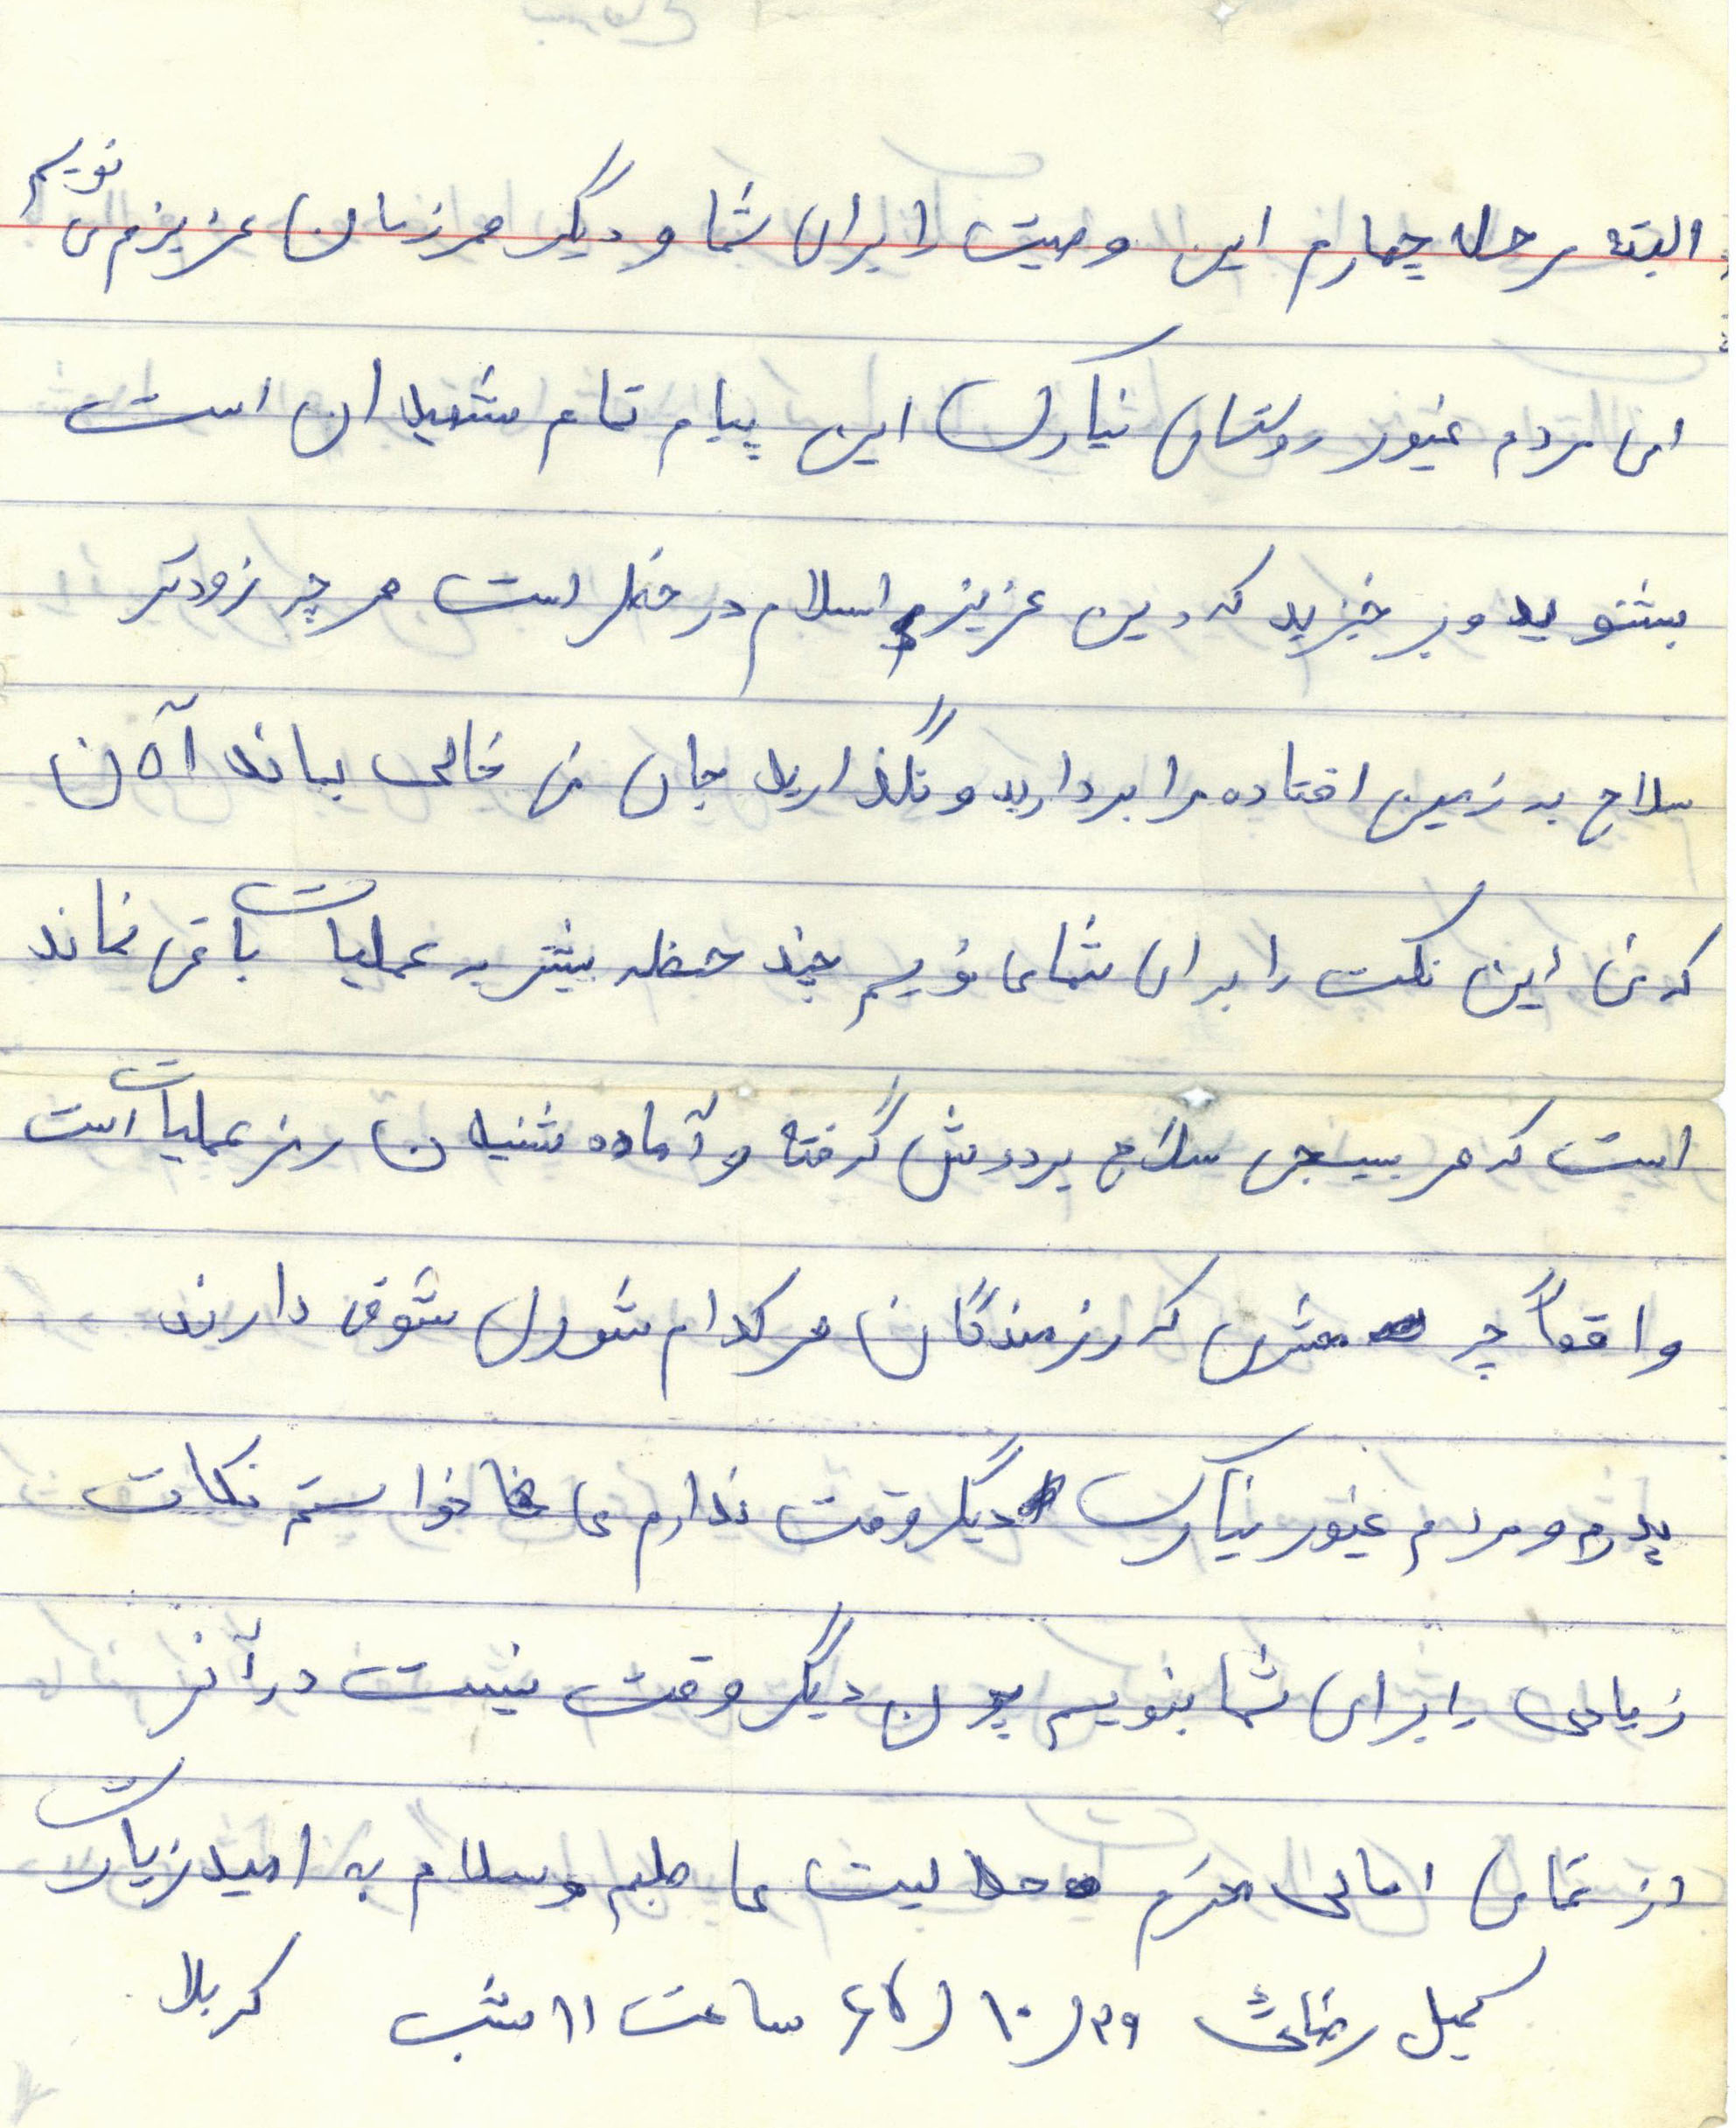 البته مرحله چهارم این وصیت را برای شما و دیگر همرزمان عزیزم می نویسم
ای مردم غیور روستای نیارک این پیام تمام شهیدان است
بشنوید و بر خیزید که دین عزیز اسلام در خطر است هر چه زودتر
سلاح به زمین افتاده مرا بردارید و نگذارید جای من خالی بماند الان
که من این نکت را برای شما می نویسم چند لحظه بیشتر به عملیات باقی نمانده
است که هر بسیجی سلاح بر دوش گرفته و آماده شنیدن رمز عملیات است
واقعاً چه عشقی که رزمندگان هر کدام شور و شوقی دارند
پدرم و مردم غیور نیارک دیگر وقت ندارم می خواستم نکات
زیادی را برای شما بنویسم چون دیگر وقت نیست در آخر
از تمامی اهالی محترم حلالیت می طلبم و سلام به امید زیارت
کربلا
کمیل رضائی ۲۹/۱۰/۶۵ ساعت ۱۱ شب